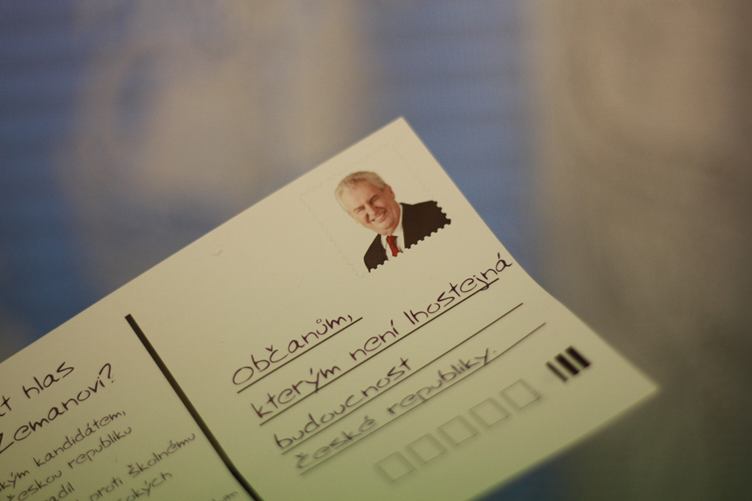 hlas
Zemanovi?
kandidátem,
českou republiku
proti školnému
občanům,
kterým není lhostejná
budoucnost
české republiky.